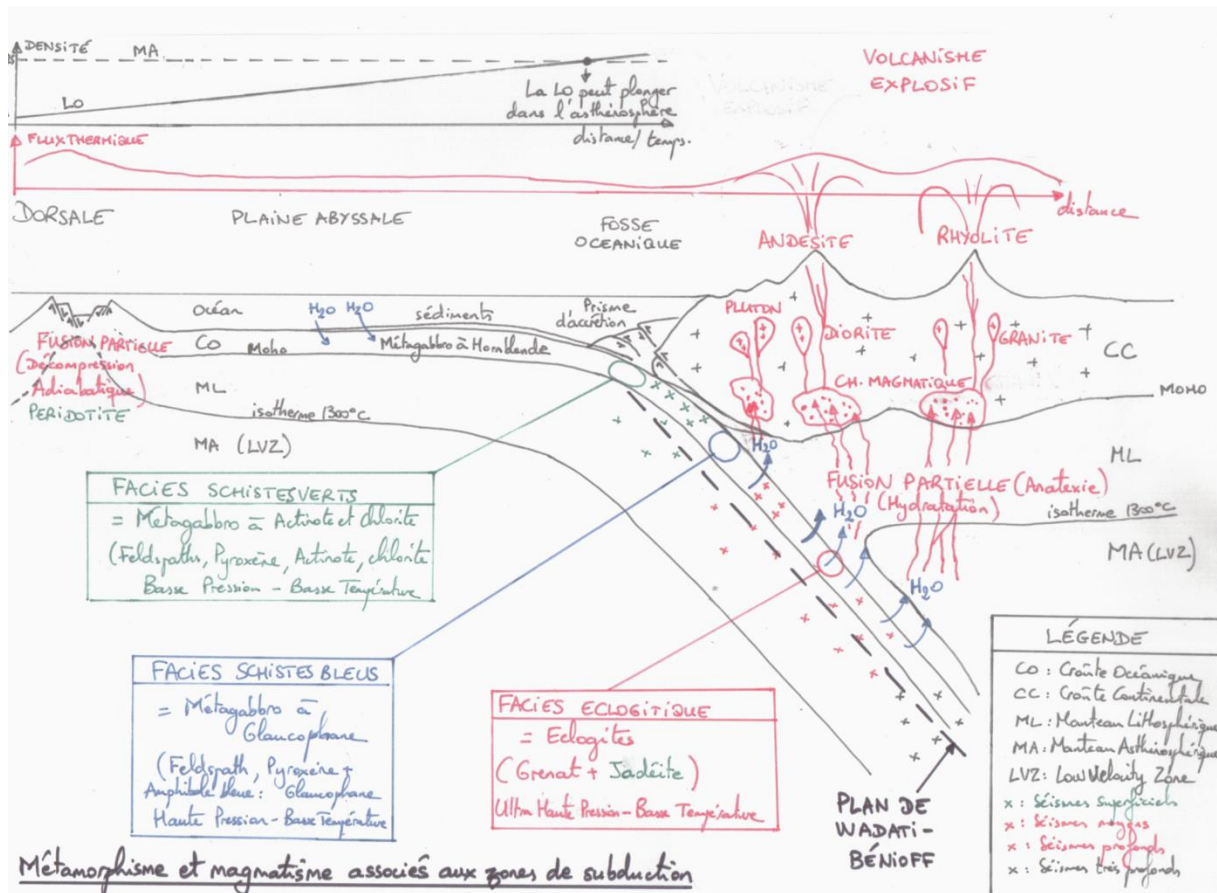 DENSITÉ
MA
LO
La LO peut plonger
dans l'asthénosphère
distance/temps.
VOLCANISME
EXPLOSIF
VOLCANISME
EXPLOSIF
FLUX THERMIQUE
distance
DORSALE
PLAINE ABYSSALE
FOSSE
OCEANIQUE
ANDESITE
RHYOLITE
Océan
H2O H2O
sédiments
Prisme
d'accrétion
PLUTON
DIORITE
GRANITE
FUSION PARTIELLE
(Décompression
Adiabatique)
PERIDOTITE
CO
Moho
Métagabbro à Hornblende
CC
CH. MAGMATIQUE
MOHO
ML
isotherme 1300°C
MA (LVZ)
H2O
ML
FUSION PARTIELLE (Anatexie)
(Hydratation)
H2O
isotherme 1300°C
MA (LVZ)
H2O
FACIES SCHISTES VERTS
= Métagabbro à Actinote et chlorite
(Feldspaths, Pyroxène, Actinote, chlorite
Basse Pression - Basse Température
FACIES SCHISTES BLEUS
= Métagabbro à
Glaucophane
(Feldspath, Pyroxène +
Amphibole bleue: Glaucophane
Haute Pression - Basse Température
FACIES ECLOGITIQUE
= Eclogites
(Grenat + Jadéite)
Ultra Haute Pression - Basse Température
PLAN DE
WADATI-
BÉNIOFF
LÉGENDE
CO : Croûte Océanique
CC : Croûte Continentale
ML : Manteau Lithosphérique
MA : Manteau Asthénosphérique
LVZ : Low Velocity Zone
x : Séismes superficiels
x : Séismes moyens
x : Séismes profonds
x : Séismes très profonds
Métamorphisme et magmatisme associés aux zones de subduction